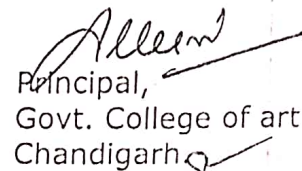 Principal,
Govt. College of art
Chandigarh